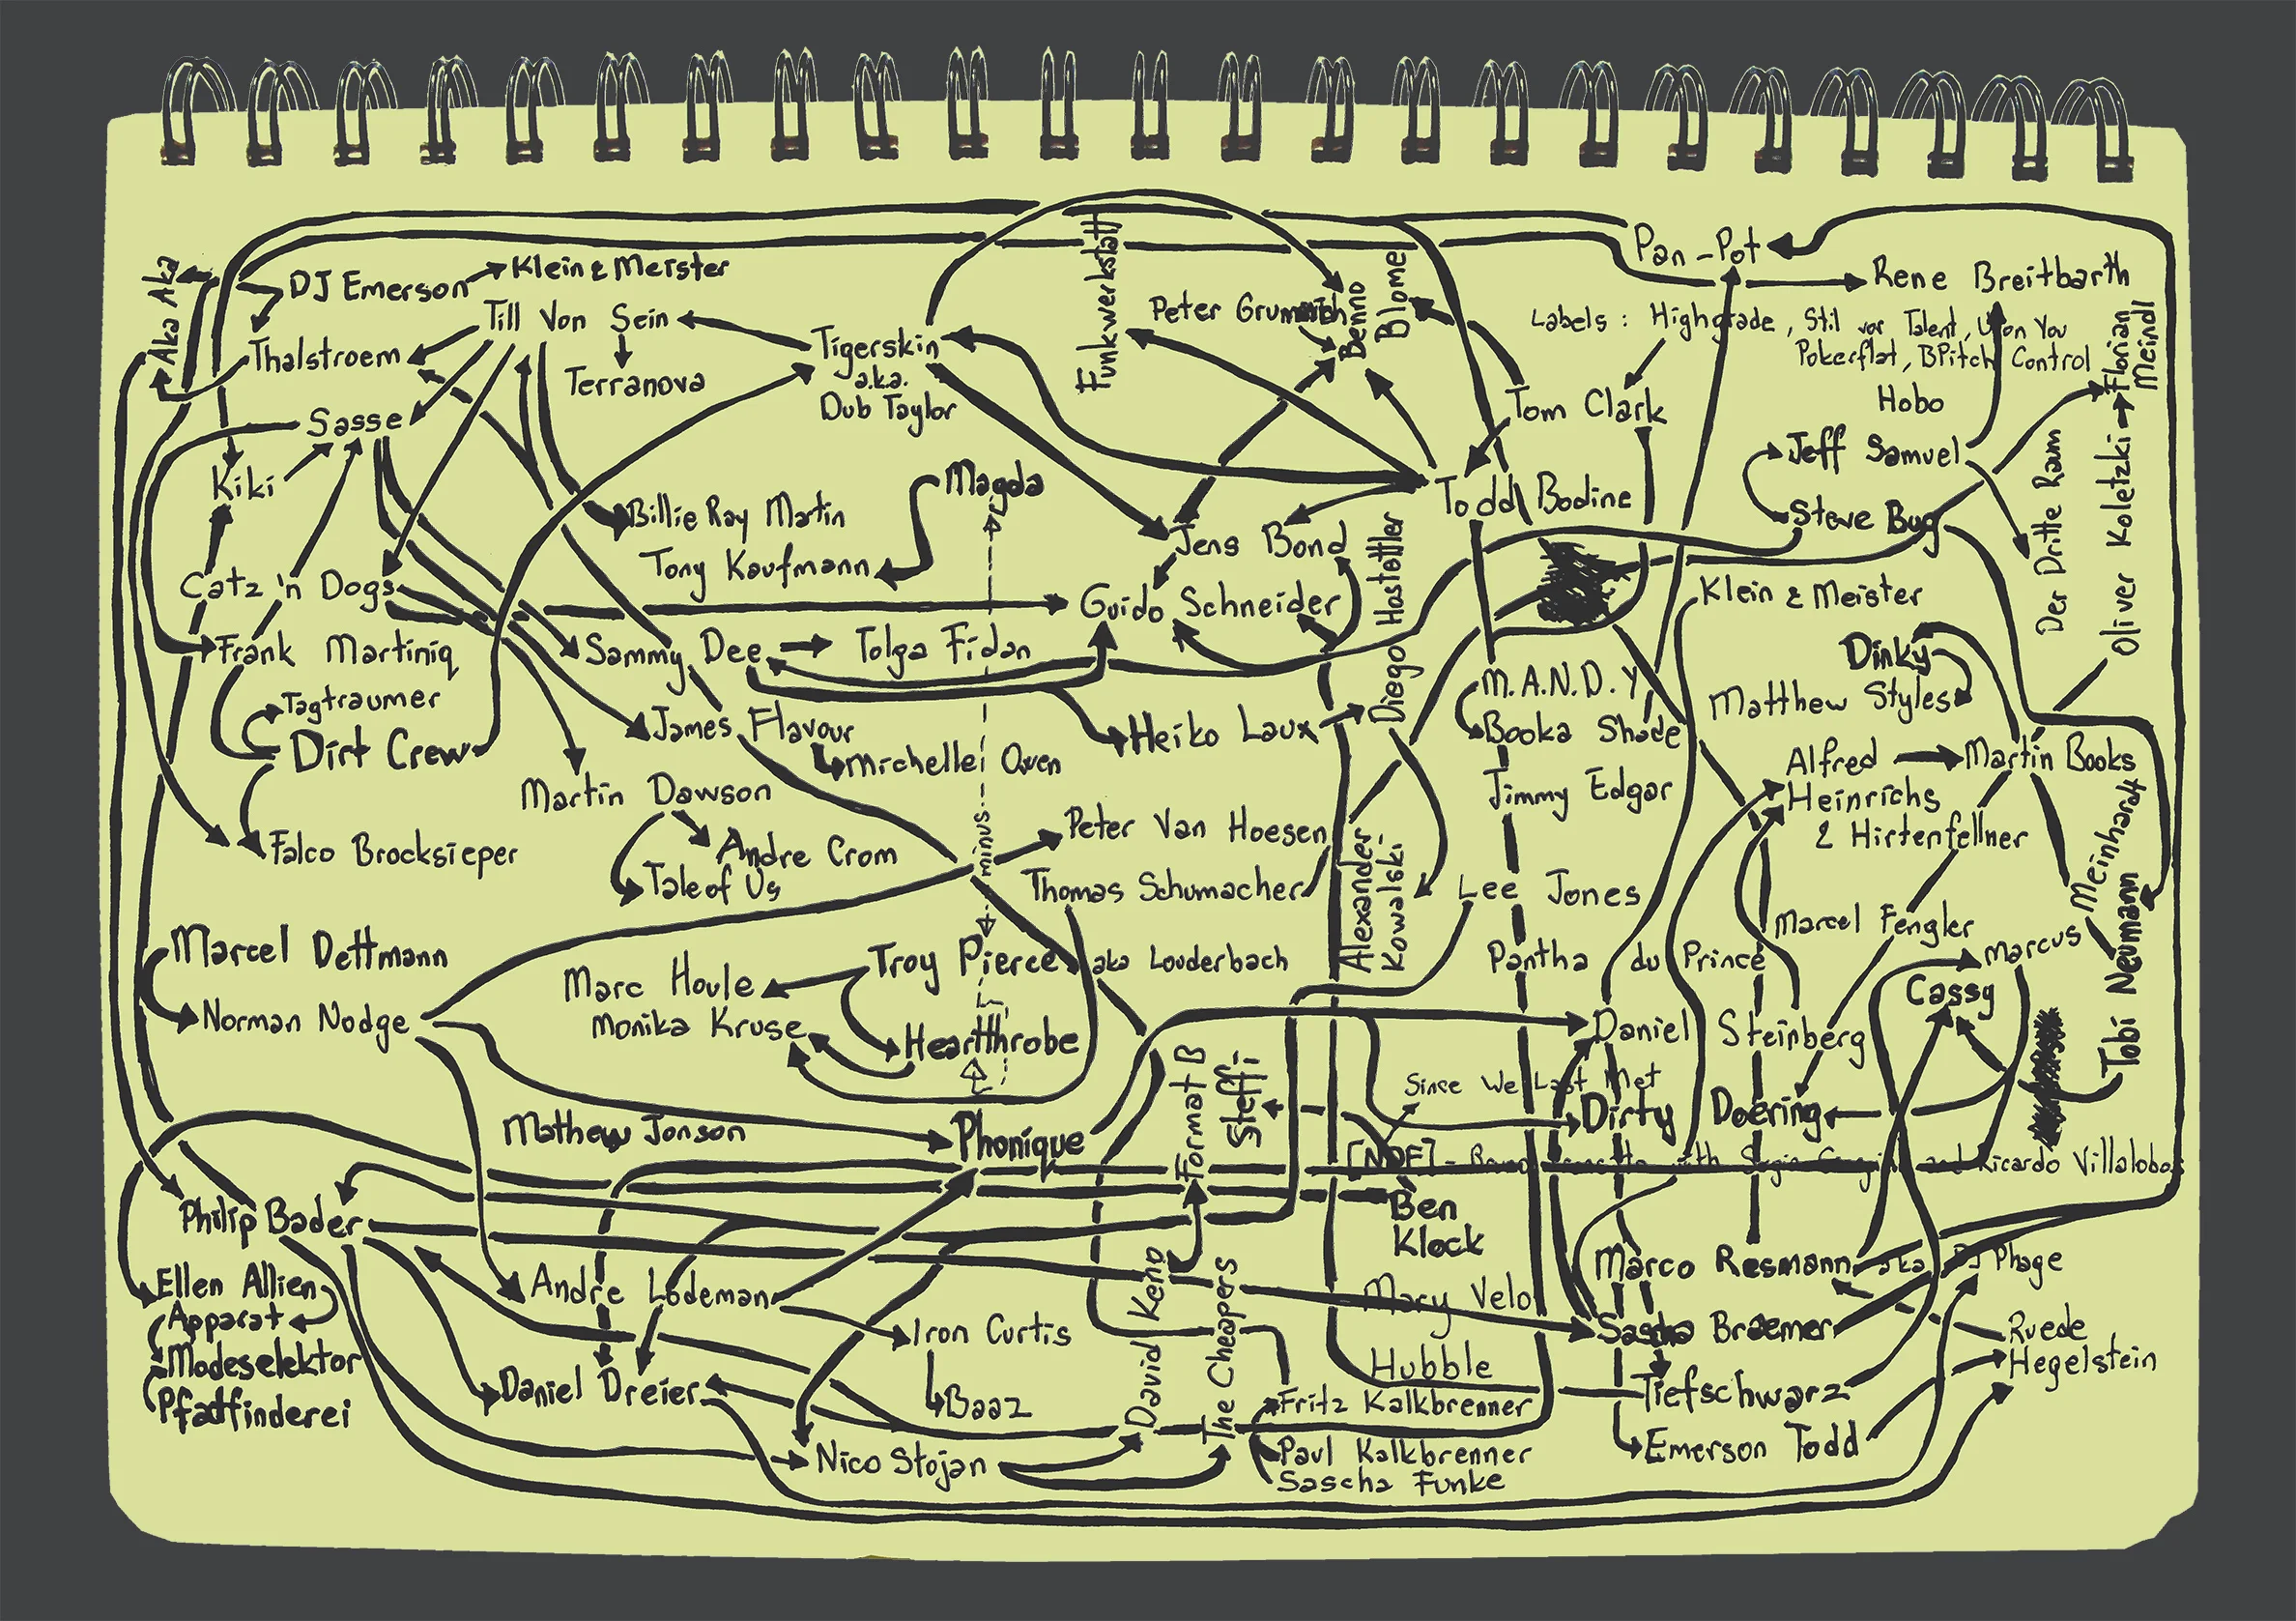 Pan-Pot
Aka Aka
DJ Emerson
Klein & Meister
Rene Breitbarth
Till Von Sein
Funkwerkstatt
Peter Grummich
Benno
Blome
Labels : Highgrade, Stil vor Talent, Upon You
Pokerflat, BPitch Control
Florian
Meindl
Thalstroem
Terranova
Tigerskin
a.k.a.
Dub Taylor
Tom Clark
Hobo
Sasse
Jeff Samuel
Kiki
Magda
Todd Bodine
Der Dritte Raum
Oliver Koletzki
Billie Ray Martin
Steve Bug
Jens Bond
Tony Kaufmann
Diego Hostettler
Catz 'n Dogs
Guido Schneider
Klein & Meister
Frank Martiniq
Sammy Dee
Tolga Fidan
Dinky
M.A.N.D.Y
Matthew Styles
Tagtraumer
James Flavour
Heiko Laux
Booka Shade
Dirt Crew
Michelle Owen
Alfred
Heinrichs
& Hirtenfellner
Martin Books
Martin Dawson
Jimmy Edgar
minus
Peter Van Hoesen
Falco Brocksieper
Andre Crom
Tale of Us
Thomas Schumacher
Alexander
Kowalski
Lee Jones
Marcus
Meinhardt
Tobi Neumann
Marcel Fengler
Marcel Dettmann
Troy Pierce aka Louderbach
Pantha du Prince
Marc Houle
Cassy
Norman Nodge
Monika Kruse
Heartthrobe
Daniel Steinberg
Format B
Steffi
Since We Last Met
Dirty Doering
Mathew Jonson
Phonique
[NDF] - Bruno with Sergio and Ricardo Villalobos
Ben
Klock
Philip Bader
Marco Resmann aka DJ Phage
Ellen Allien
Andre Lodeman
David Keno
The Cheapers
Mary Velo
Apparat
Iron Curtis
Sascha Braemer
Ruede
Hegelstein
Modeselektor
Hubble
Daniel Dreier
Tiefschwarz
Pfatfinderei
Baaz
Fritz Kalkbrenner
Emerson Todd
Nico Stojan
Paul Kalkbrenner
Sascha Funke